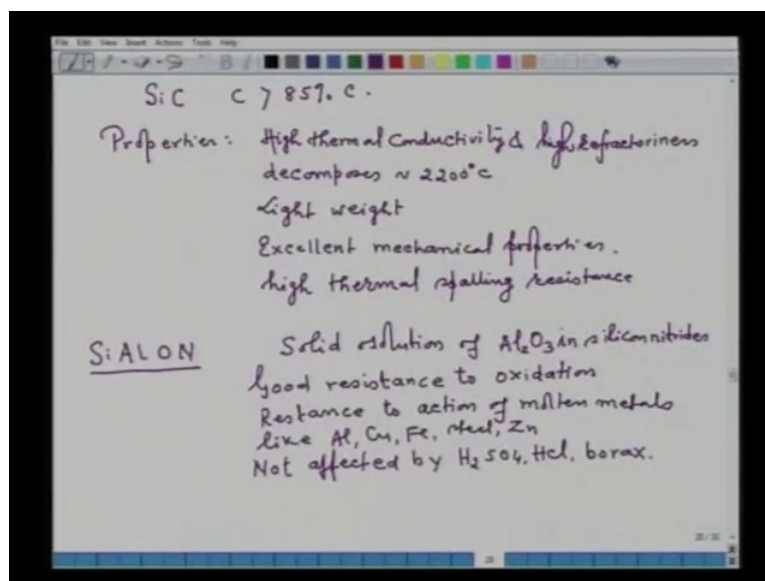 File Edit View Insert Actions Tools Help
SiC C > 85%. C.
Properties: High thermal conductivity & high refractoriness
decomposes ~ 2200°C
Light weight
Excellent mechanical properties.
high thermal spalling resistance
SiALON Solid solution of Al2O3 in silicon nitrides
Good resistance to oxidation
Restance to action of molten metals
like Al, Cu, Fe, steel, Zn
Not affected by H2SO4, Hcl, borax.